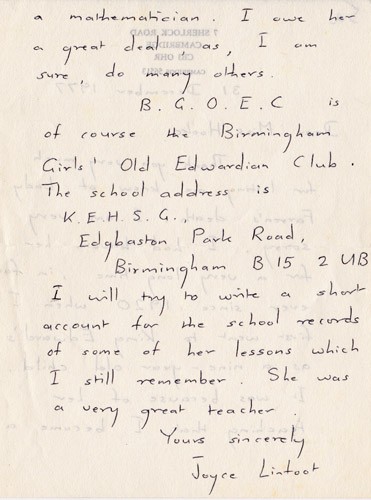 a mathematician. I owe her
a great deal, as, I am
sure, do many others.
B. G. O. E. C is
of course the Birmingham
Girls' Old Edwardian Club.
The school address is
K.E.H.S.G.,
Edgbaston Park Road,
Birmingham B 15 2 UB
I will try to write a short
account for the school records
of some of her lessons which
I still remember. She was
a very great teacher.
Yours sincerely
Joyce Linfoot